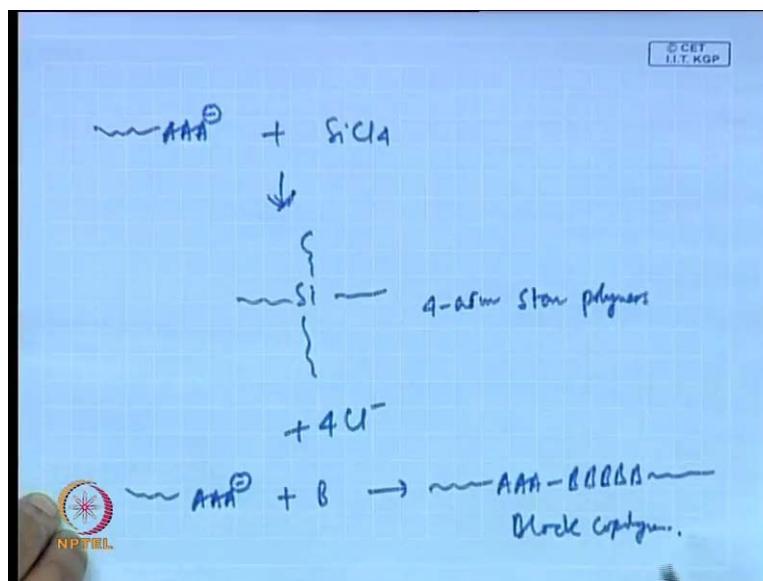 © CET
I.I.T. KGP
AAA⊖ + SiCl4
Si
4-arm Star polymers
+ 4Cl⁻
AAA⊖ + B → AAA-BBBBB
Block
NPTEL